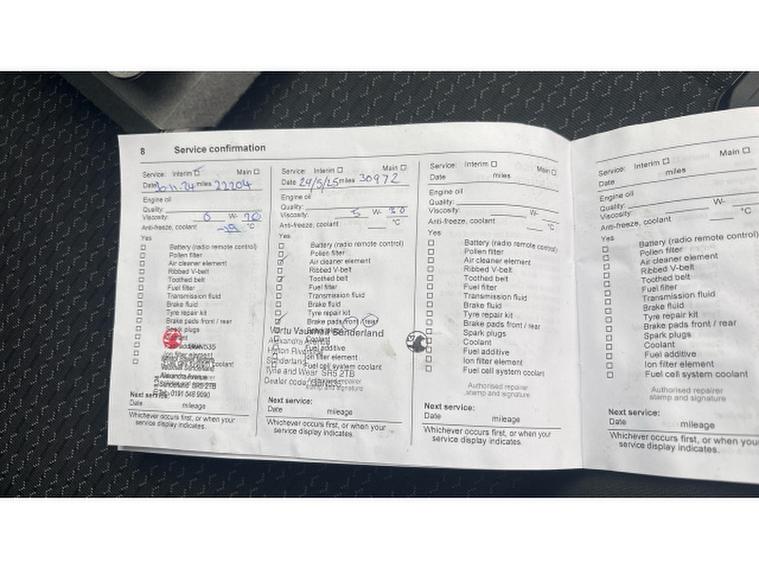 8 Service confirmation
Service: Interim Main
Date miles 22204
Engine oil
Quality:
Viscosity: 0 W- 20
Anti-freeze, coolant -19 °C
Yes
Battery (radio remote control)
Pollen filter
Air cleaner element
Ribbed V-belt
Toothed belt
Fuel filter
Transmission fluid
Brake fluid
Tyre repair kit
Brake pads front / rear
Spark plugs
Ion filter element
Fuel cell system coolant
Vauxhall Sunderland
Alexandra Avenue
Sunderland SR5 2TB
Tel: 0191 548 9090
Next service:
Date mileage
Whichever occurs first, or when your
service display indicates.
Service: Interim Main
Date 24/5/25 miles 30972
Engine oil
Quality:
Viscosity: 5 W- 30
Anti-freeze, coolant °C
Yes
Battery (radio remote control)
Pollen filter
Air cleaner element
Ribbed V-belt
Toothed belt
Fuel filter
Transmission fluid
Brake fluid
Tyre repair kit
Brake pads front / rear
Vertu Vauxhall Sunderland
Coolant
Fuel additive
Ion filter element
Sunderland
Fuel cell system coolant
Tyne and Wear SR5 2TB
Dealer code:
stamp and signature
Next service:
Date mileage
Whichever occurs first, or when your
service display indicates.
Service: Interim Main
Date miles
Engine oil
Quality:
Viscosity: W-
Anti-freeze, coolant °C
Yes
Battery (radio remote control)
Pollen filter
Air cleaner element
Ribbed V-belt
Toothed belt
Fuel filter
Transmission fluid
Brake fluid
Tyre repair kit
Brake pads front / rear
Spark plugs
Coolant
Fuel additive
Ion filter element
Fuel cell system coolant
Authorised repairer
stamp and signature
Next service:
Date mileage
Whichever occurs first, or when your
service display indicates.
Service: Interim Main
Date miles
Engine oil
Quality:
Viscosity: W-
Anti-freeze, coolant °C
Yes
Battery (radio remote control)
Pollen filter
Air cleaner element
Ribbed V-belt
Toothed belt
Fuel filter
Transmission fluid
Brake fluid
Tyre repair kit
Brake pads front / rear
Spark plugs
Coolant
Fuel additive
Ion filter element
Fuel cell system coolant
Authorised repairer
stamp and signature
Next service:
Date mileage
Whichever occurs first, or when your
service display indicates.